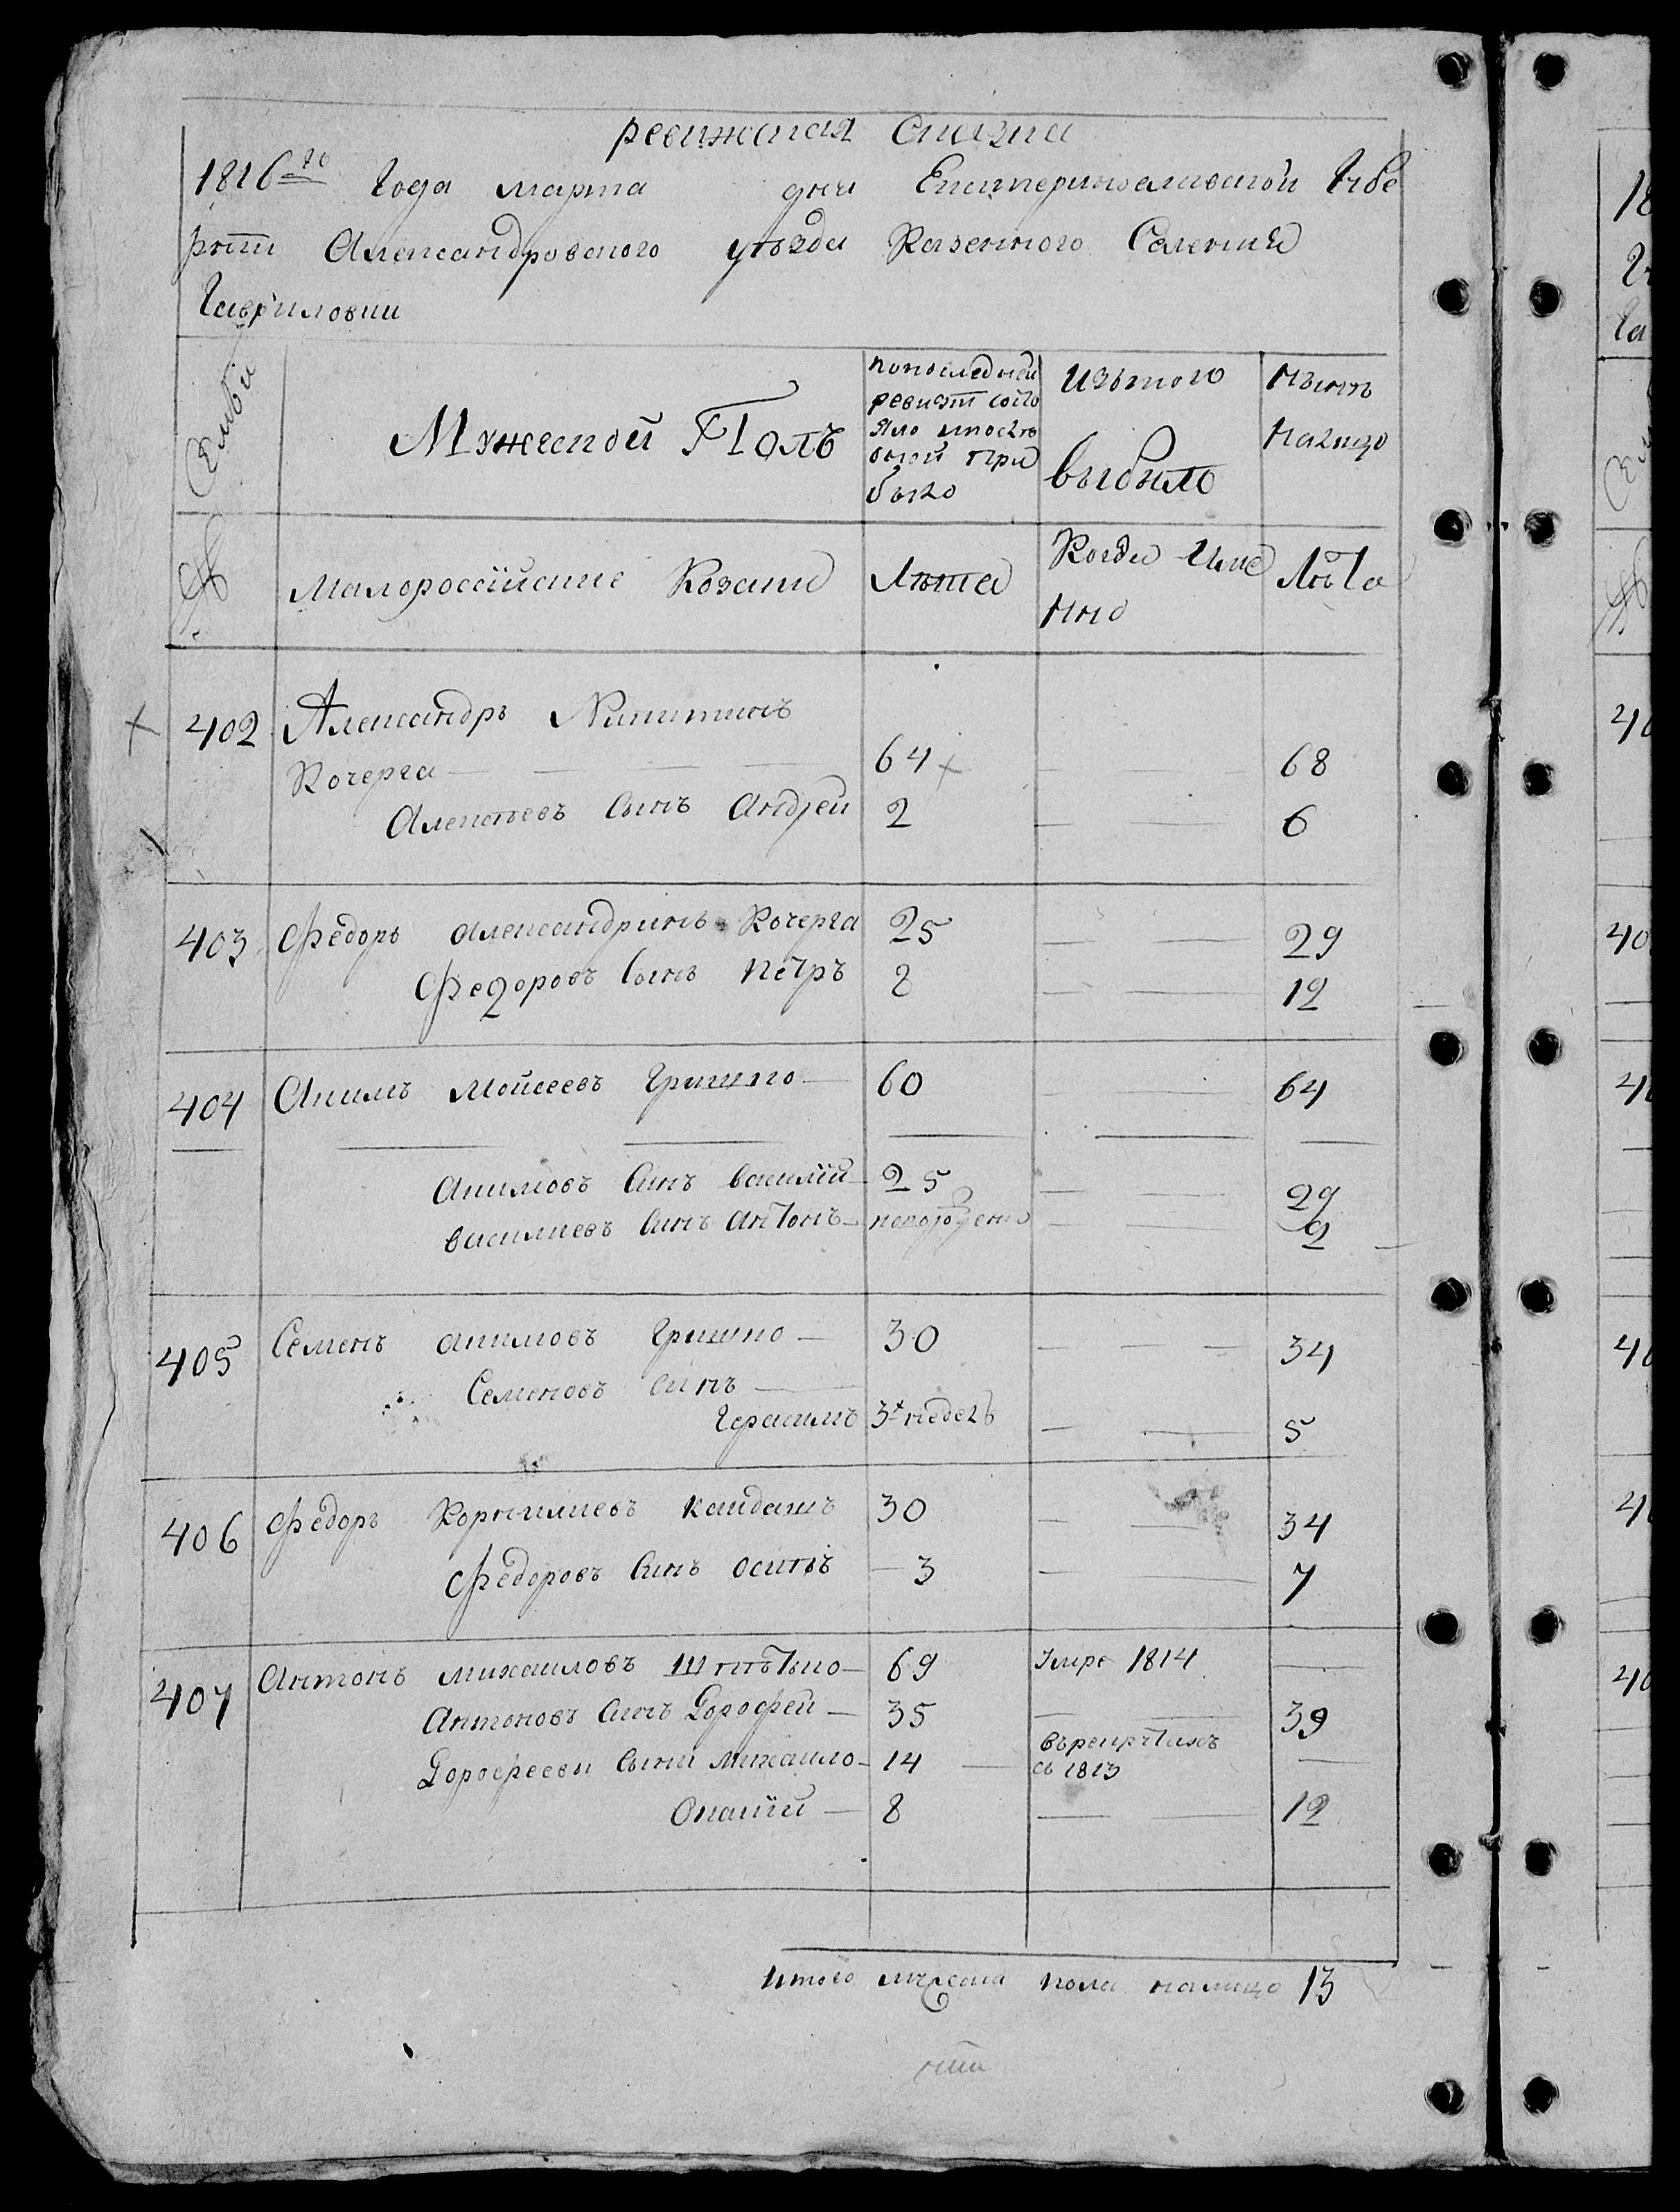 ревижская сказка
1816го Года марта дня Екатеринославской Губе
рнiи Александровского уѣзда Казенного Селения
Гавриловки
Семьи
Мужеской Полъ
попоследней
ревизiи состо
яло ипослѣ
оной при
было
изътого
выбыло
Нынѣ
налицо
№
Малоросciйские Козаки
Лѣта
Когда Име
нно
Лѣта
402 Александръ Никитинъ
Кочерга 64 68
Алексѣевъ сынъ Андрей 2 6
403 Федоръ Александринъ Кочерга 25 29
Федоровъ сынъ Петръ 8 12
404 Акимъ Мойсеевъ Гришко 60 64
Акимовъ Синъ василiй 25 29
василиевъ Синъ Антонъ неворожденъ 2
405 Семенъ акимовъ Гришко 30 34
Семеновъ синъ
Герасимъ 3х недель 5
406 Федоръ Корнилиевъ кайдашъ 30 34
Федоровъ Синъ осипъ 3 7
407 Антонъ михаиловъ Шпѣтько 69 Умре 1814
Антоновъ Синъ Дорофей 35 39
Дорофееви Сыни Михаило 14 върекрутахъ
съ 1813
Онакiй 8 12
Итого мужеска пола налицо 13